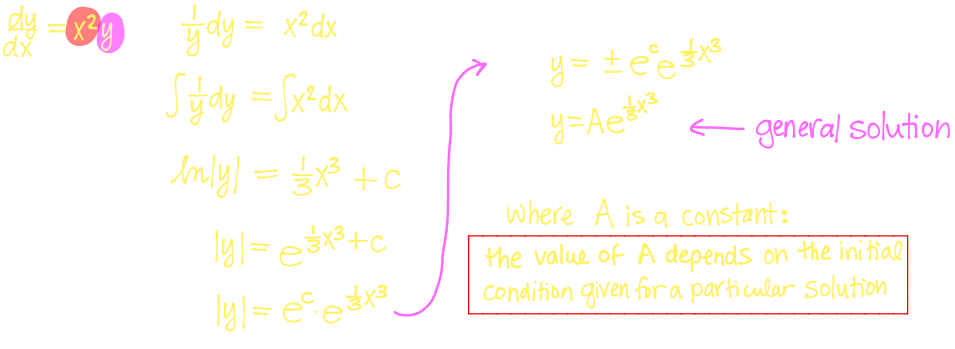 dy/dx = x²y
1/y dy = x² dx
∫ 1/y dy = ∫ x² dx
ln|y| = 1/3 x³ + c
|y| = e^(1/3 x³ + c)
|y| = e^c · e^(1/3 x³)
y = ± e^c e^(1/3 x³)
y = A e^(1/3 x³)
general solution
where A is a constant:
the value of A depends on the initial
condition given for a particular solution